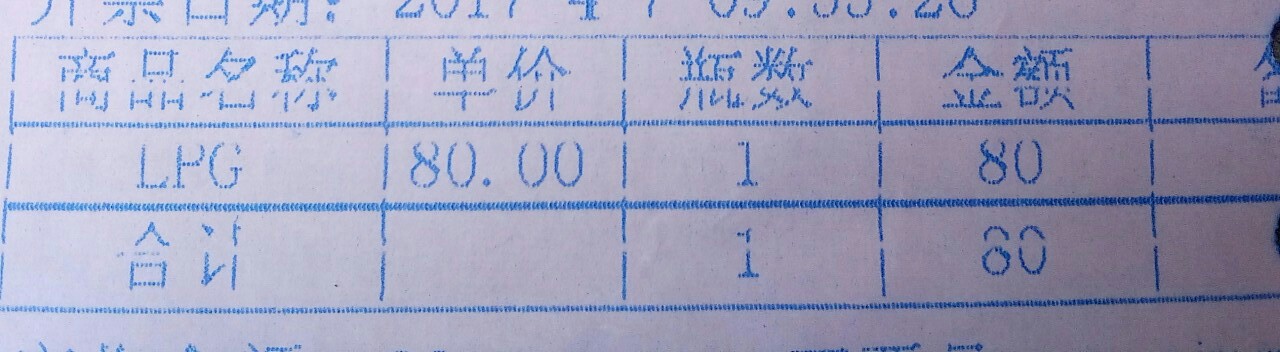 开票日期: 2017 4 7 09:55:20
商品名称 单价 瓶数 金额
LPG 80.00 1 80
合计 1 80